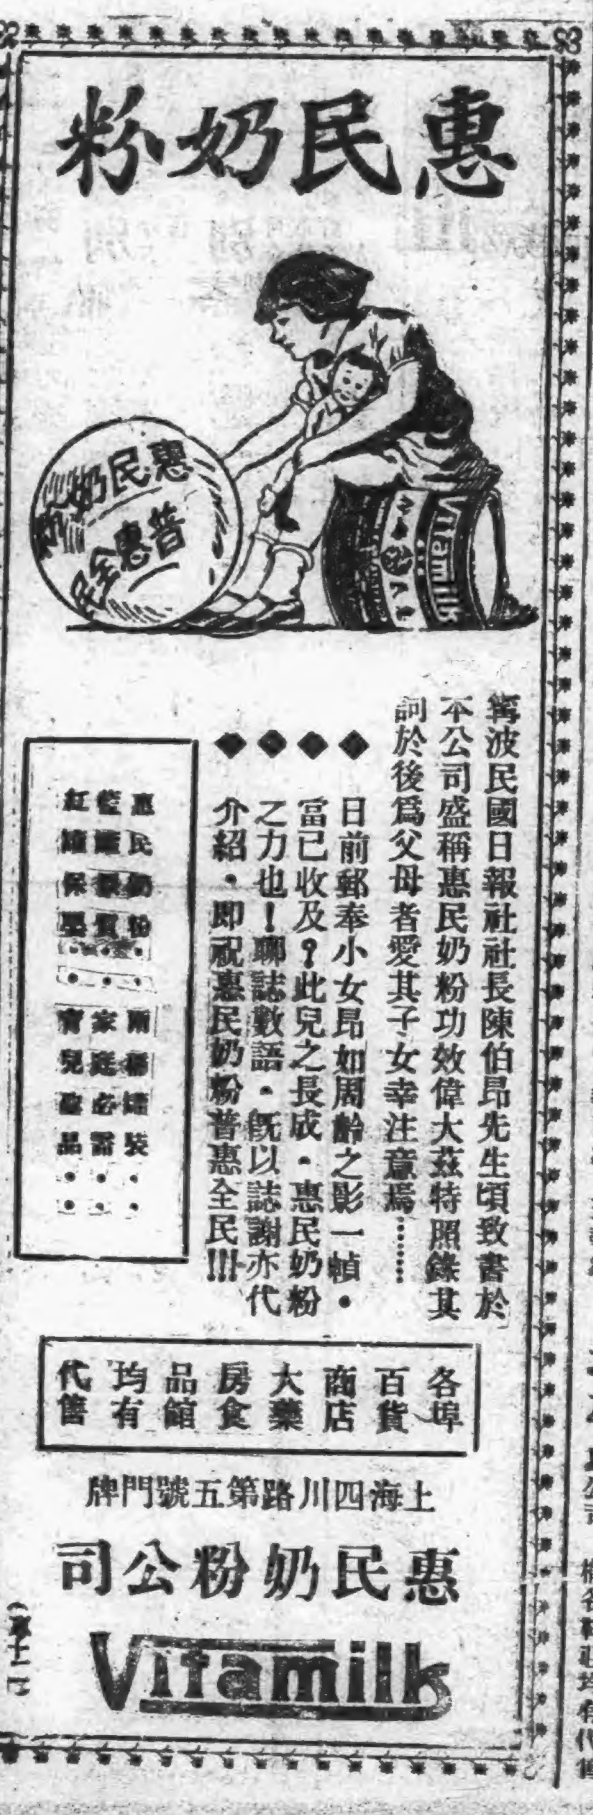 惠民奶粉
惠民奶粉
普惠全民
Vitamilk
甯波民國日報社社長陳伯昂先生頃致書於
本公司盛稱惠民奶粉功效偉大茲特照錄其
詞於後爲父母者愛其子女幸注意焉………
日前郵奉小女昂如周齡之影一幀・
當已收及?此兒之長成・惠民奶粉
之力也!聊誌數語・旣以誌謝亦代
介紹・即祝惠民奶粉普惠全民!!!
惠民奶粉・・兩種罐裝・・
藍罐 ・・家庭必需・・
紅罐保嬰・・育兒 品・・
各埠
百貨
商店
大藥
房食
品館
均有
代售
上海四川路第五號門牌
惠民奶粉公司
Vitamilk